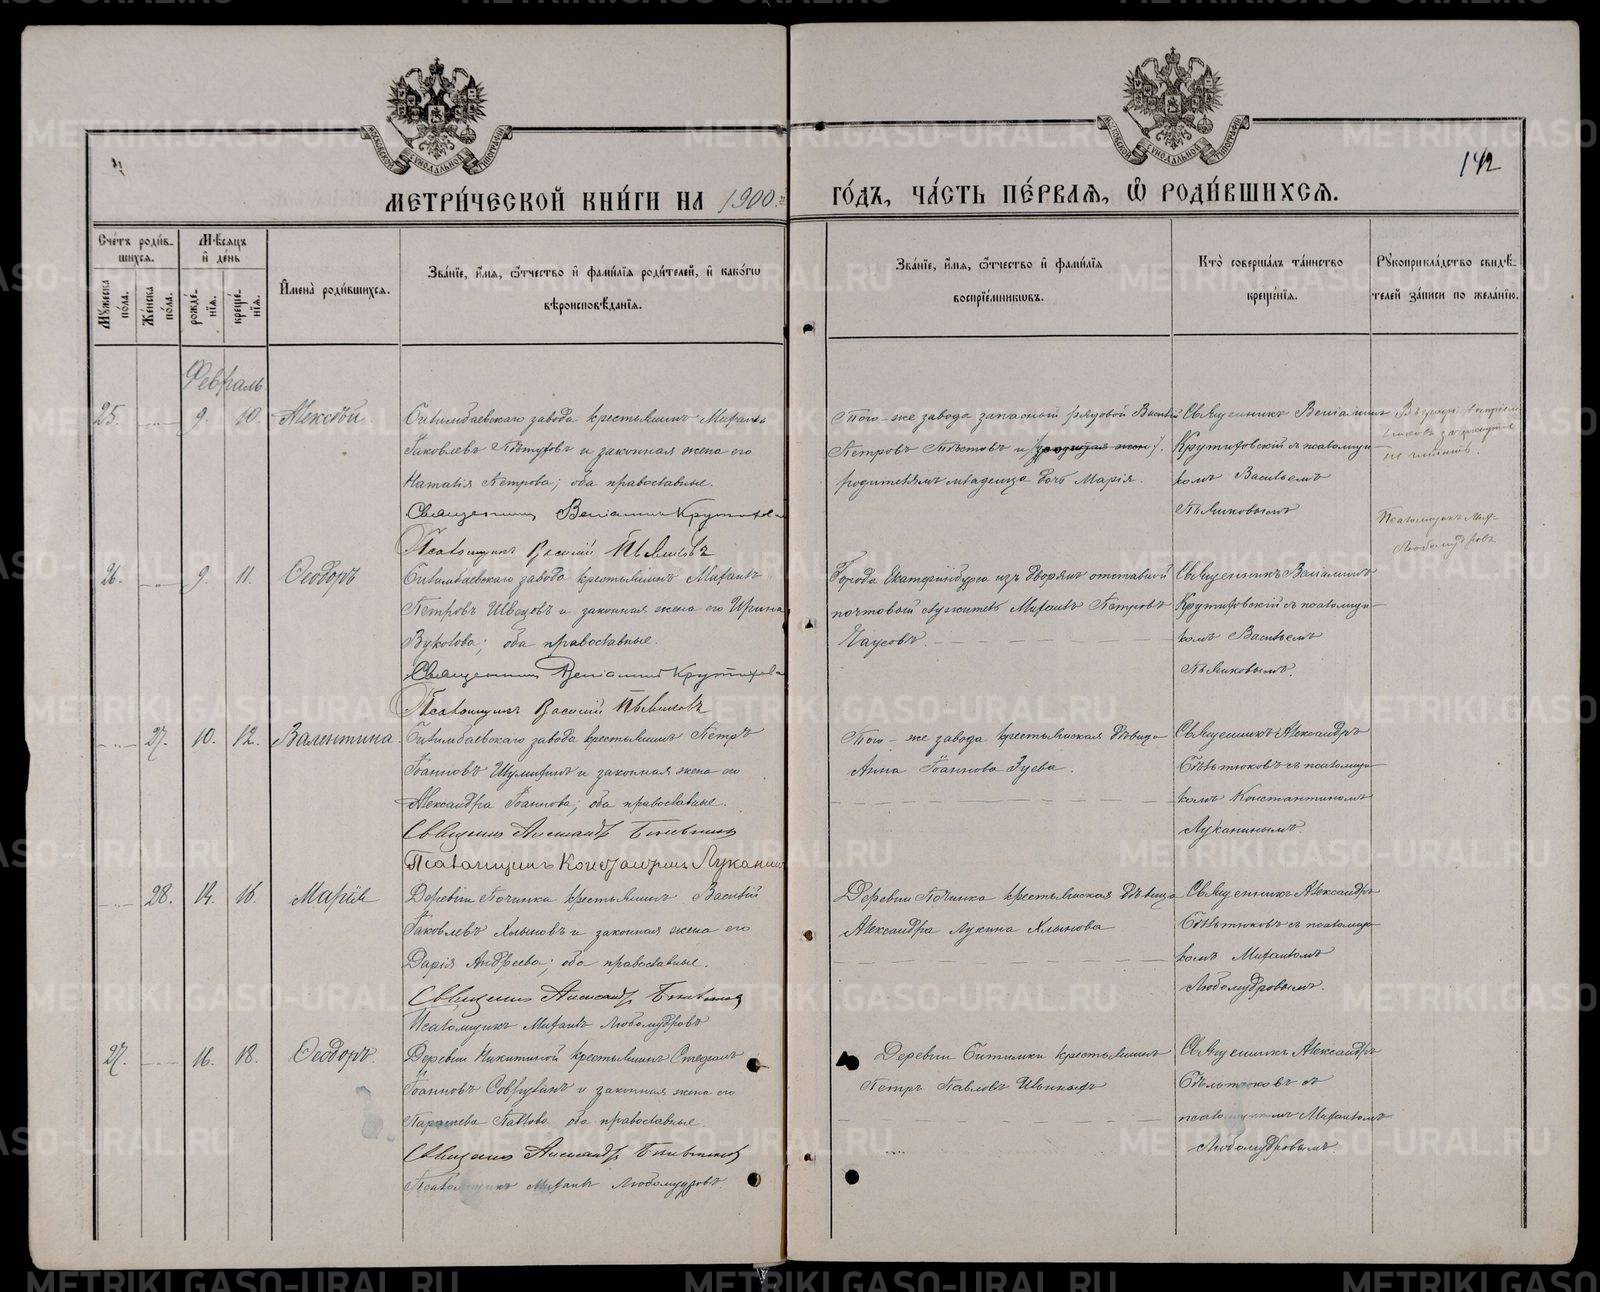 МЕТРИ́ЧЕСКОЙ КНИ́ГИ НА 1900.
ГО́ДЪ, ЧА́СТЬ ПЕ́РВАЯ, Ѿ РОДИ́ВШИХСЯ.
142
Сче́тъ роди́в-
шихся.
Мꙋжеска по́ла.
Же́нска по́ла.
Мѣсяцъ
и де́нь
рожде́-
нія.
креще́-
нія.
Имена̀ роди́вшихся.
Зва́ніе, и́мя, ѻ́тчество и фами́лія роди́телей, и како́гѡ
вѣроисповѣ́данія.
Зва́ніе, и́мя, ѻ́тчество и фами́лія
воспріе́мниковъ.
Кто̀ соверша́лъ та́инство
креще́нія.
Рꙋкоприкла́дство свидѣ́-
телей за́писи по жела́нію.
Февраль
25. 9. 10. Алексѣй
Билимбаевскаго завода крестьянинъ Михаилъ
Іаковлевъ и законная жена его
Наталія Петрова; оба православные.
Священникъ Веніаминъ Крутиховскій
Псаломщикъ Василій Пьянковъ
Того-же завода запасный рядовой Василій
Петровъ и
родителямъ младенца дочь Марія.
Священникъ Веніаминъ
Крутиховскій съ псаломщи-
комъ Васильемъ
Пьянковымъ
Въ графѣ воспріем-
никовъ зачеркнутое
не читать.
Псаломщикъ Мих.
Любомудровъ
26. 9. 11. Ѳеодоръ
Билимбаевскаго завода крестьянинъ Михаилъ
Петровъ Швецовъ и законная жена его Ирина
Вуколова; оба православные.
Священникъ Веніаминъ Крутиховскій
Псаломщикъ Василій Пьянковъ
Города Екатеринбурга изъ дворянъ отставной
почтовый служитель Михаилъ Петровъ
Чаусовъ.
Священникъ Веніаминъ
Крутиховскій съ псаломщи-
комъ Васильемъ
Пьянковымъ.
27. 10. 12. Валентина
Билимбаевскаго завода крестьянинъ Петръ
Іоанновъ Шумихинъ и законная жена его
Александра Іоаннова; оба православные.
Священникъ Александръ Бѣльтюковъ
Псаломщикъ Константинъ Луканинъ
Того-же завода крестьянская дѣвица
Анна Іоаннова Зуева.
Священникъ Александръ
Бѣльтюковъ съ псаломщи-
комъ Константиномъ
Луканинымъ.
28. 14. 16. Марія
Деревни Починка крестьянинъ Василій
Іаковлевъ Хлыновъ и законная жена его
Дарія Андреева; оба православные.
Священникъ Александръ Бѣльтюковъ
Псаломщикъ Михаилъ Любомудровъ
Деревни Починка крестьянская дѣвица
Александра Лукина Хлынова
Священникъ Александръ
Бѣльтюковъ съ псаломщи-
комъ Михаиломъ
Любомудровымъ.
27. 16. 18. Ѳеодоръ
Деревни Никитиной крестьянинъ Стефанъ
Іоанновъ и законная жена его
Параскева Павлова оба православные.
Священникъ Александръ Бѣльтюковъ
Псаломщикъ Михаилъ Любомудровъ.
Деревни Битимки крестьянинъ
Петръ Павловъ
Священникъ Александръ
Бѣльтюковъ съ
псаломщикомъ Михаиломъ
Любомудровымъ
METRIKI.GASO-URAL.RU